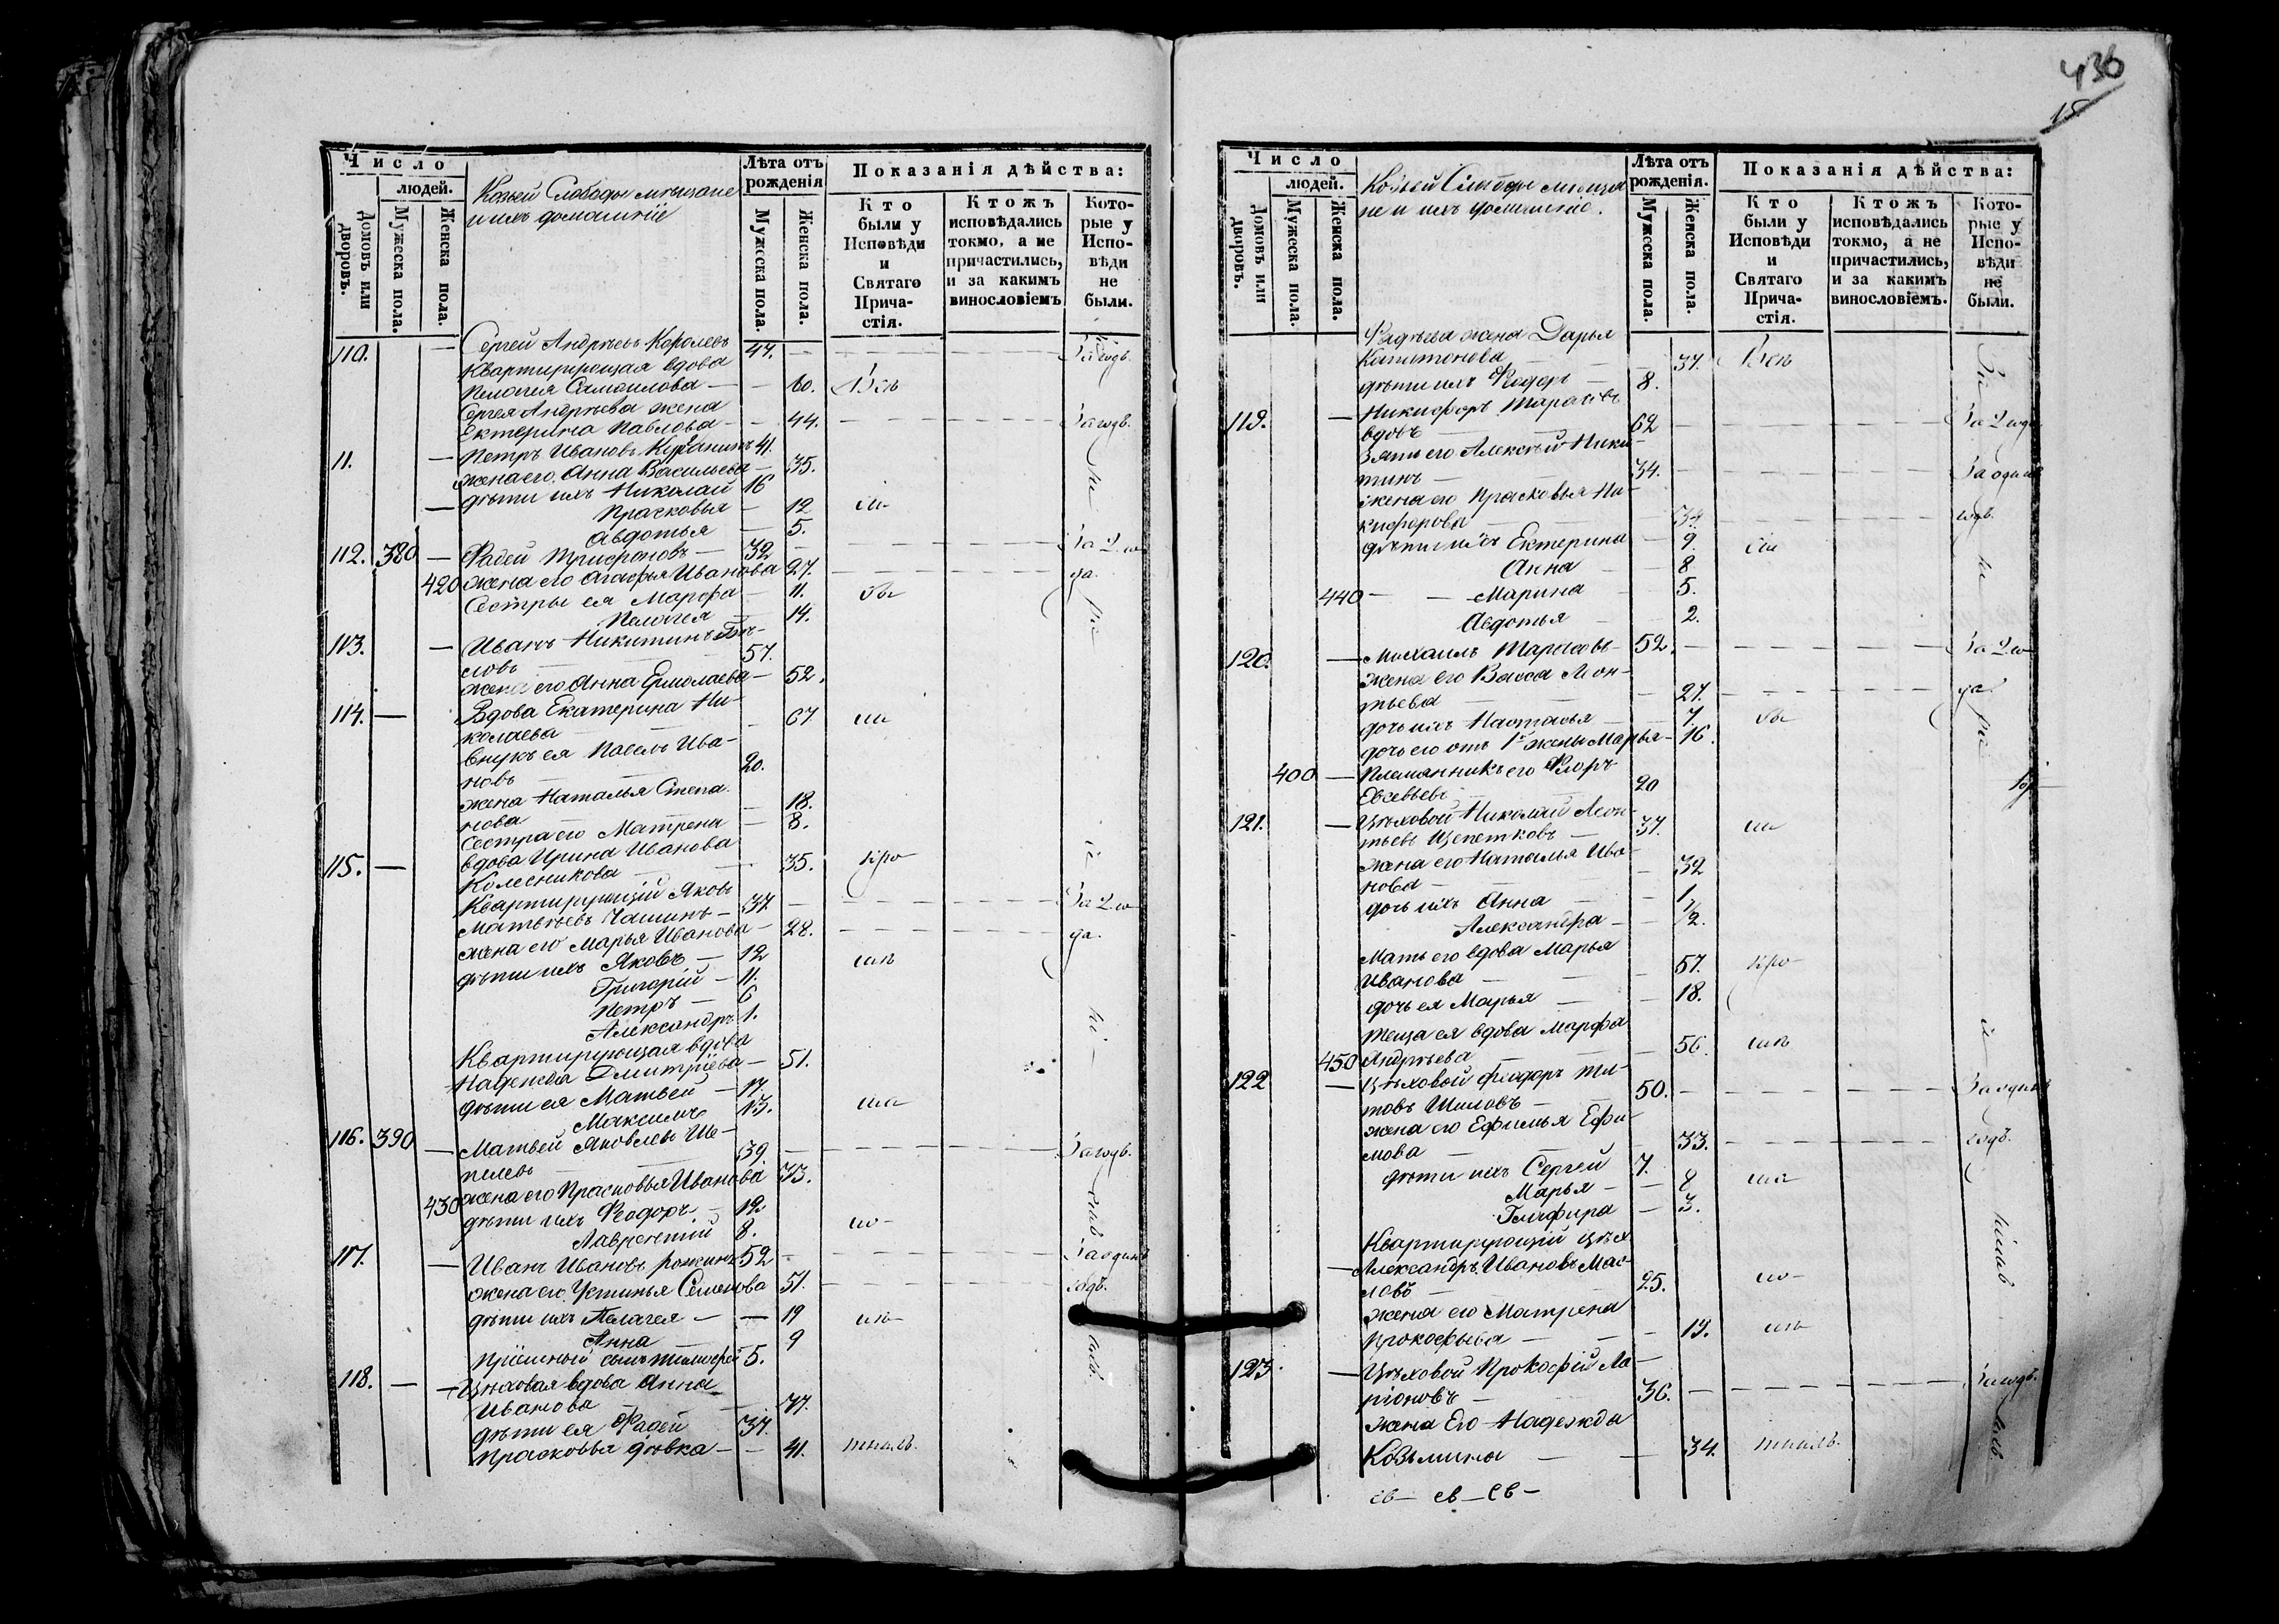 436
15
Число
людей.
Домовъ или дворовъ.
Мужеска пола.
Женска пола.
Козьей Слободы мѣщане
и ихъ домашніе
Лѣта отъ рожденія
Мужеска пола.
Женска пола.
Показанія дѣйства:
Кто были у Исповѣди и Святаго Причастія.
Ктожъ исповѣдались токмо, а не причастились, и за какимъ винословіемъ
Которые у Исповѣди не были.
110. — Сергей Андреевъ Королевъ 47. — За годъ.
Квартирующая вдова
Пелагея Самоилова — — 60.
Сергея Андреева жена
Екатерина Павлова — — 44. — За годъ.
11. — Петръ Ивановъ 41.
жена его Анна Васильева — 35.
дѣти ихъ Николай 16
— Прасковья — 12
Авдотья — 5.
112. 380 — Фадей Трифоновъ — 32 — За 2 го-
420 жена его Агафья Иванова 27. — да.
Сестры ея Марфа — 11.
Пелагея — 14.
113. — Иванъ Никитинъ
ловъ — 57.
жена его Анна Ермолаева — 52.
114. — Вдова Екатерина Ни-
колаева — — 67
внукъ ея Павелъ Ива-
новъ — 20.
жена Наталья Степа-
нова — 18.
Сестра его Матрена — 8.
115. — вдова Ирина Иванова
Колесникова — — 35.
Квартирующій Яковъ
Матвѣевъ Чашинъ — 37. — За 2 го-
жена его Марья Иванова — 28. — да.
дѣти ихъ Яковъ — 12
Григорій — 11.
Петръ — 6
Александръ 1.
Квартирующая вдова
Надежда Дмитріева — 51.
дѣти ея Матвей — 17.
Максимъ 13.
116. 390 — Матвей Яковлевъ Ше-
пелевъ — 39 — За годъ.
430 жена его Прасковья Иванова 33.
дѣти ихъ Феодоръ — 12
Лаврентій 8.
117. — Иванъ Ивановъ 52 — За одинъ
жена его Устинья Семенова 51. — годъ.
дѣти ихъ Пелагея — — 19
Анна — 9
Пріемный сынъ Тимофей 5.
118. — — Цеховая вдова Анна
Иванова — 77.
дѣти ея Фадей 37.
Прасковья дѣвка — — 41.
Число
людей.
Домовъ или дворовъ.
Мужеска пола.
Женска пола.
Козьей Слободы мѣща-
не и ихъ домашніе.
Лѣта отъ рожденія.
Мужеска пола.
Женска пола.
Показанія дѣйства:
Кто были у Исповѣди и Святаго Причастія.
Ктожъ исповѣдались токмо, а не причастились, и за какимъ винословіемъ.
Которые у Исповѣди не были.
Фадѣева жена Дарья
Капитонова — 37.
дѣти ихъ Федоръ — 8.
119. — Никифоръ Тарасовъ
вдовъ — 62 — За 2 года
Зять его Алексѣй Ники-
тинъ — 34. — За одинъ
жена его Прасковья Ни-
кифорова — 34. — годъ.
дѣти ихъ Екатерина — 9.
Анна — 8
440 — — Марина — 5.
Авдотья — 2.
120. — Михаилъ Тарасовъ — 52. — За 2 го-
жена его Васса Леон-
тьева — — 27. — да.
дочь ихъ Настасья — — 7.
дочь его отъ 1й жены Марья — 16.
400 — Племянникъ его
Евсевьевъ — 20
121. — Цѣховой Николай Леон-
тьевъ Щепетковъ — 37.
жена его Наталья Ива-
нова — — 32
дочь ихъ Анна — — 1
Александра — 1/2.
Мать его вдова Марья
Иванова — — 57.
дочь ея Марья — — 18.
теща ея вдова Марфа
450 Андреева — — 56.
122 — Цѣховой Феодоръ Ти-
товъ Шиловъ — 50. — За одинъ
жена его Ефимья Ефи-
мова — — 33. — годъ.
дѣти ихъ Сергей 7.
Марья — — 8
Глафира — 3.
Квартирующій цѣх.
— Александръ Ивановъ Мас-
ловъ — 25.
жена его Матрена
Прокофьева — — 19.
123. — Цѣховой Прокофій Ла-
ріоновъ — 36. — За годъ.
жена Его Надежда
Козьмина — — 34.